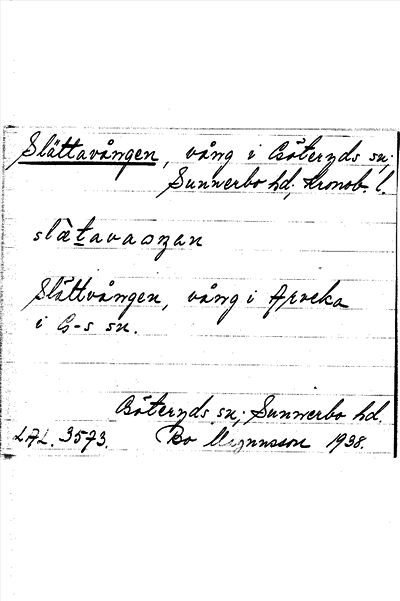 Slättavången, vång i Göteryds sn;
Sunnerbo hd, Kronob. l.
slætavaoŋan
Slättvången, vång i Arveka
i G-s sn.
Göteryds sn; Sunnerbo hd.
LAL. 3573. Bo Magnusson 1938.